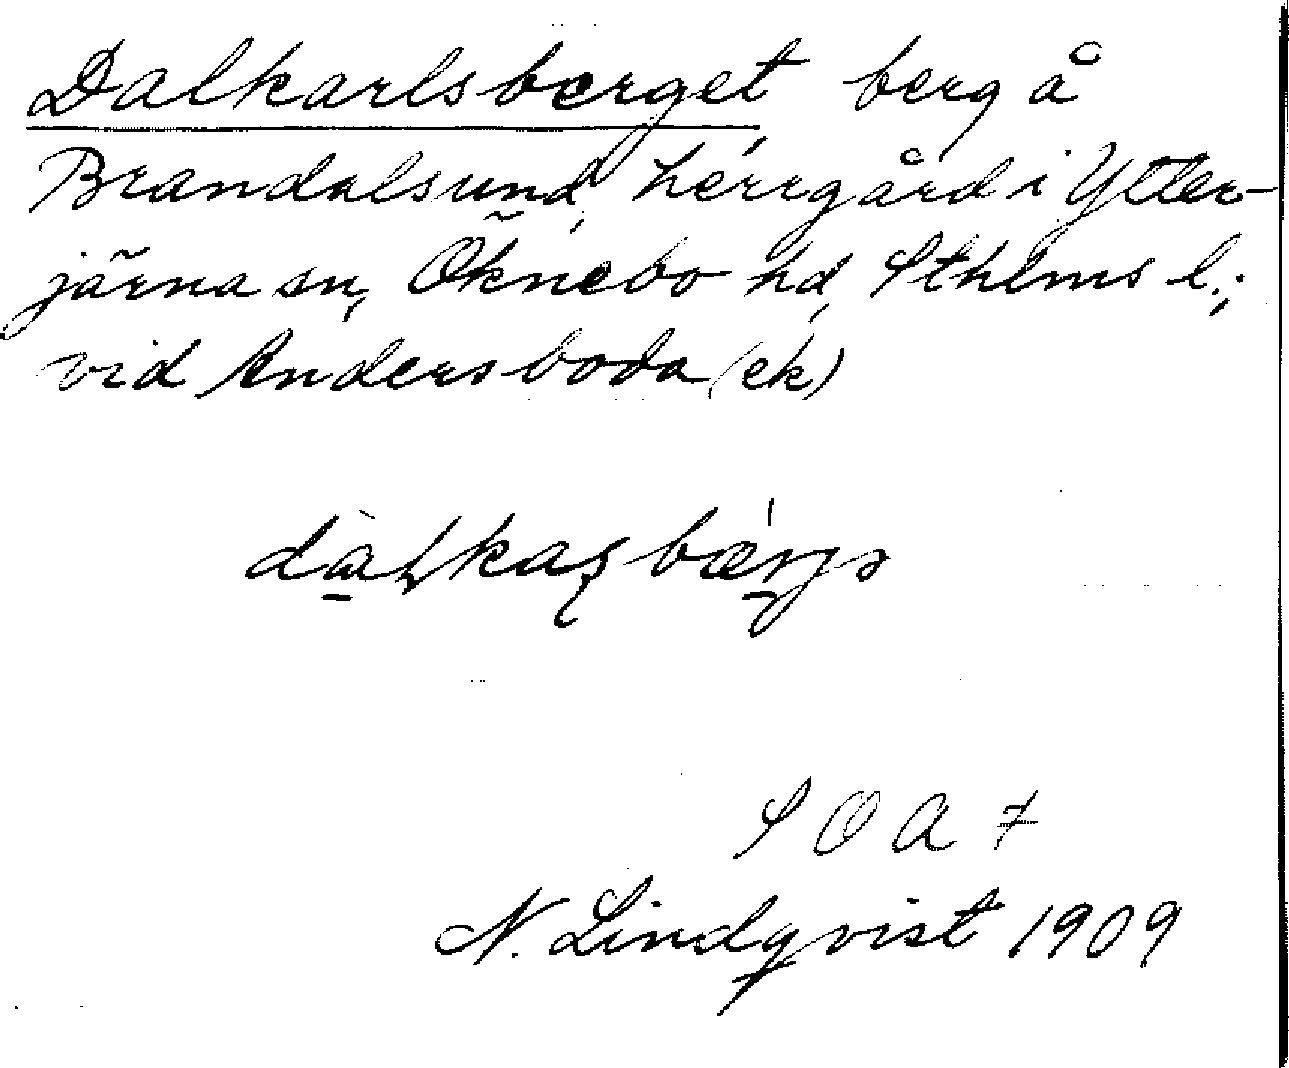 Dalkarlsberget berg å
Brandalsund, herrgård i Ytter-
järna sn, Öknebo hd, Sthlms l.;
vid Andersboda (ek)
SOA 7
N. Lindqvist 1909